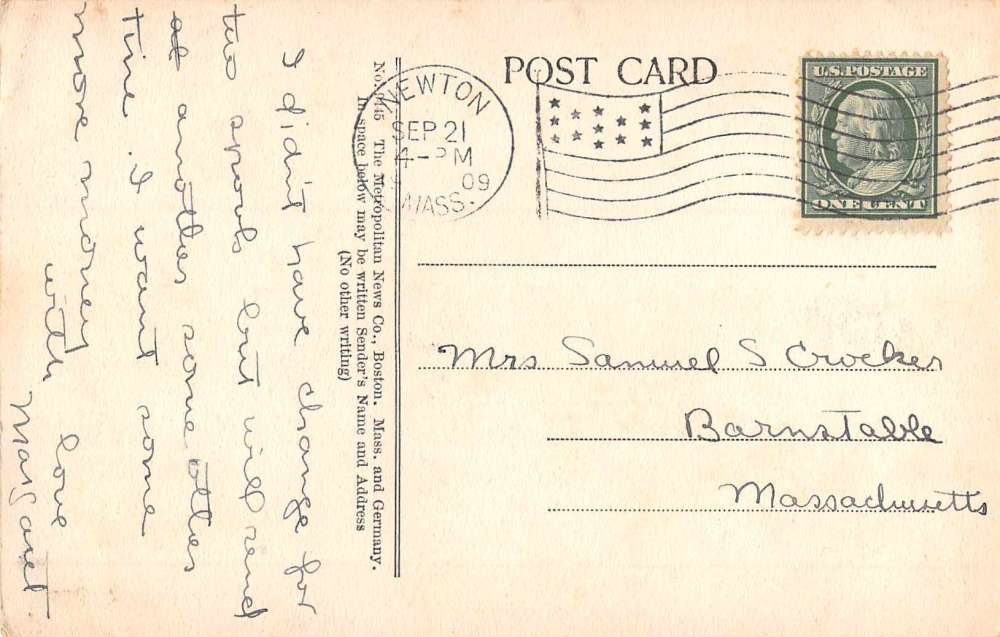 POST CARD
U.S. POSTAGE
ONE CENT
NEWTON
SEP 21
4-PM
09
MASS.
Mrs Samuel S Crocker
Barnstable
Massachusetts
No. 2145 The Metropolitan News Co., Boston. Mass. and Germany.
In space below may be written Sender's Name and Address
(No other writing)
I didn't have change for
two spools but will send
at another some other
time. I want some
more money
with love
Margaret.